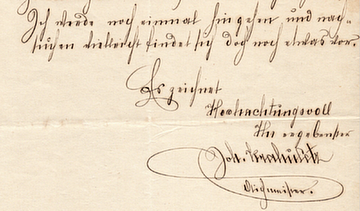 Ich werde noch einmal hingehen und nach-
suchen vielleicht findet sich doch noch etwas vor.
Es zeichnet
Hochachtungsvoll
Ihr ergebenster
Joh.
Aichmeister.